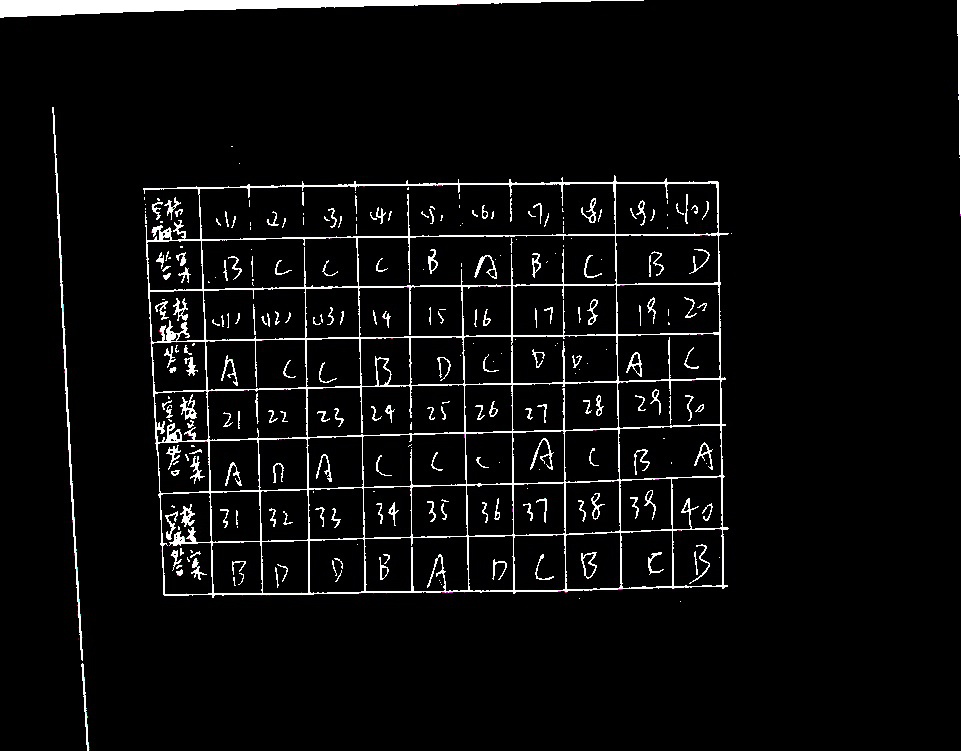 空格编号 (1) (2) (3) (4) (5) (6) (7) (8) (9) (10)
答案 B C C C B A B C B D
空格编号 (11) (12) (13) 14 15 16 17 18 19 20
答案 A C C B D C D D A C
空格编号 21 22 23 24 25 26 27 28 29 30
答案 A D A C C C A C B A
空格编号 31 32 33 34 35 36 37 38 39 40
答案 B D D B A D C B C B